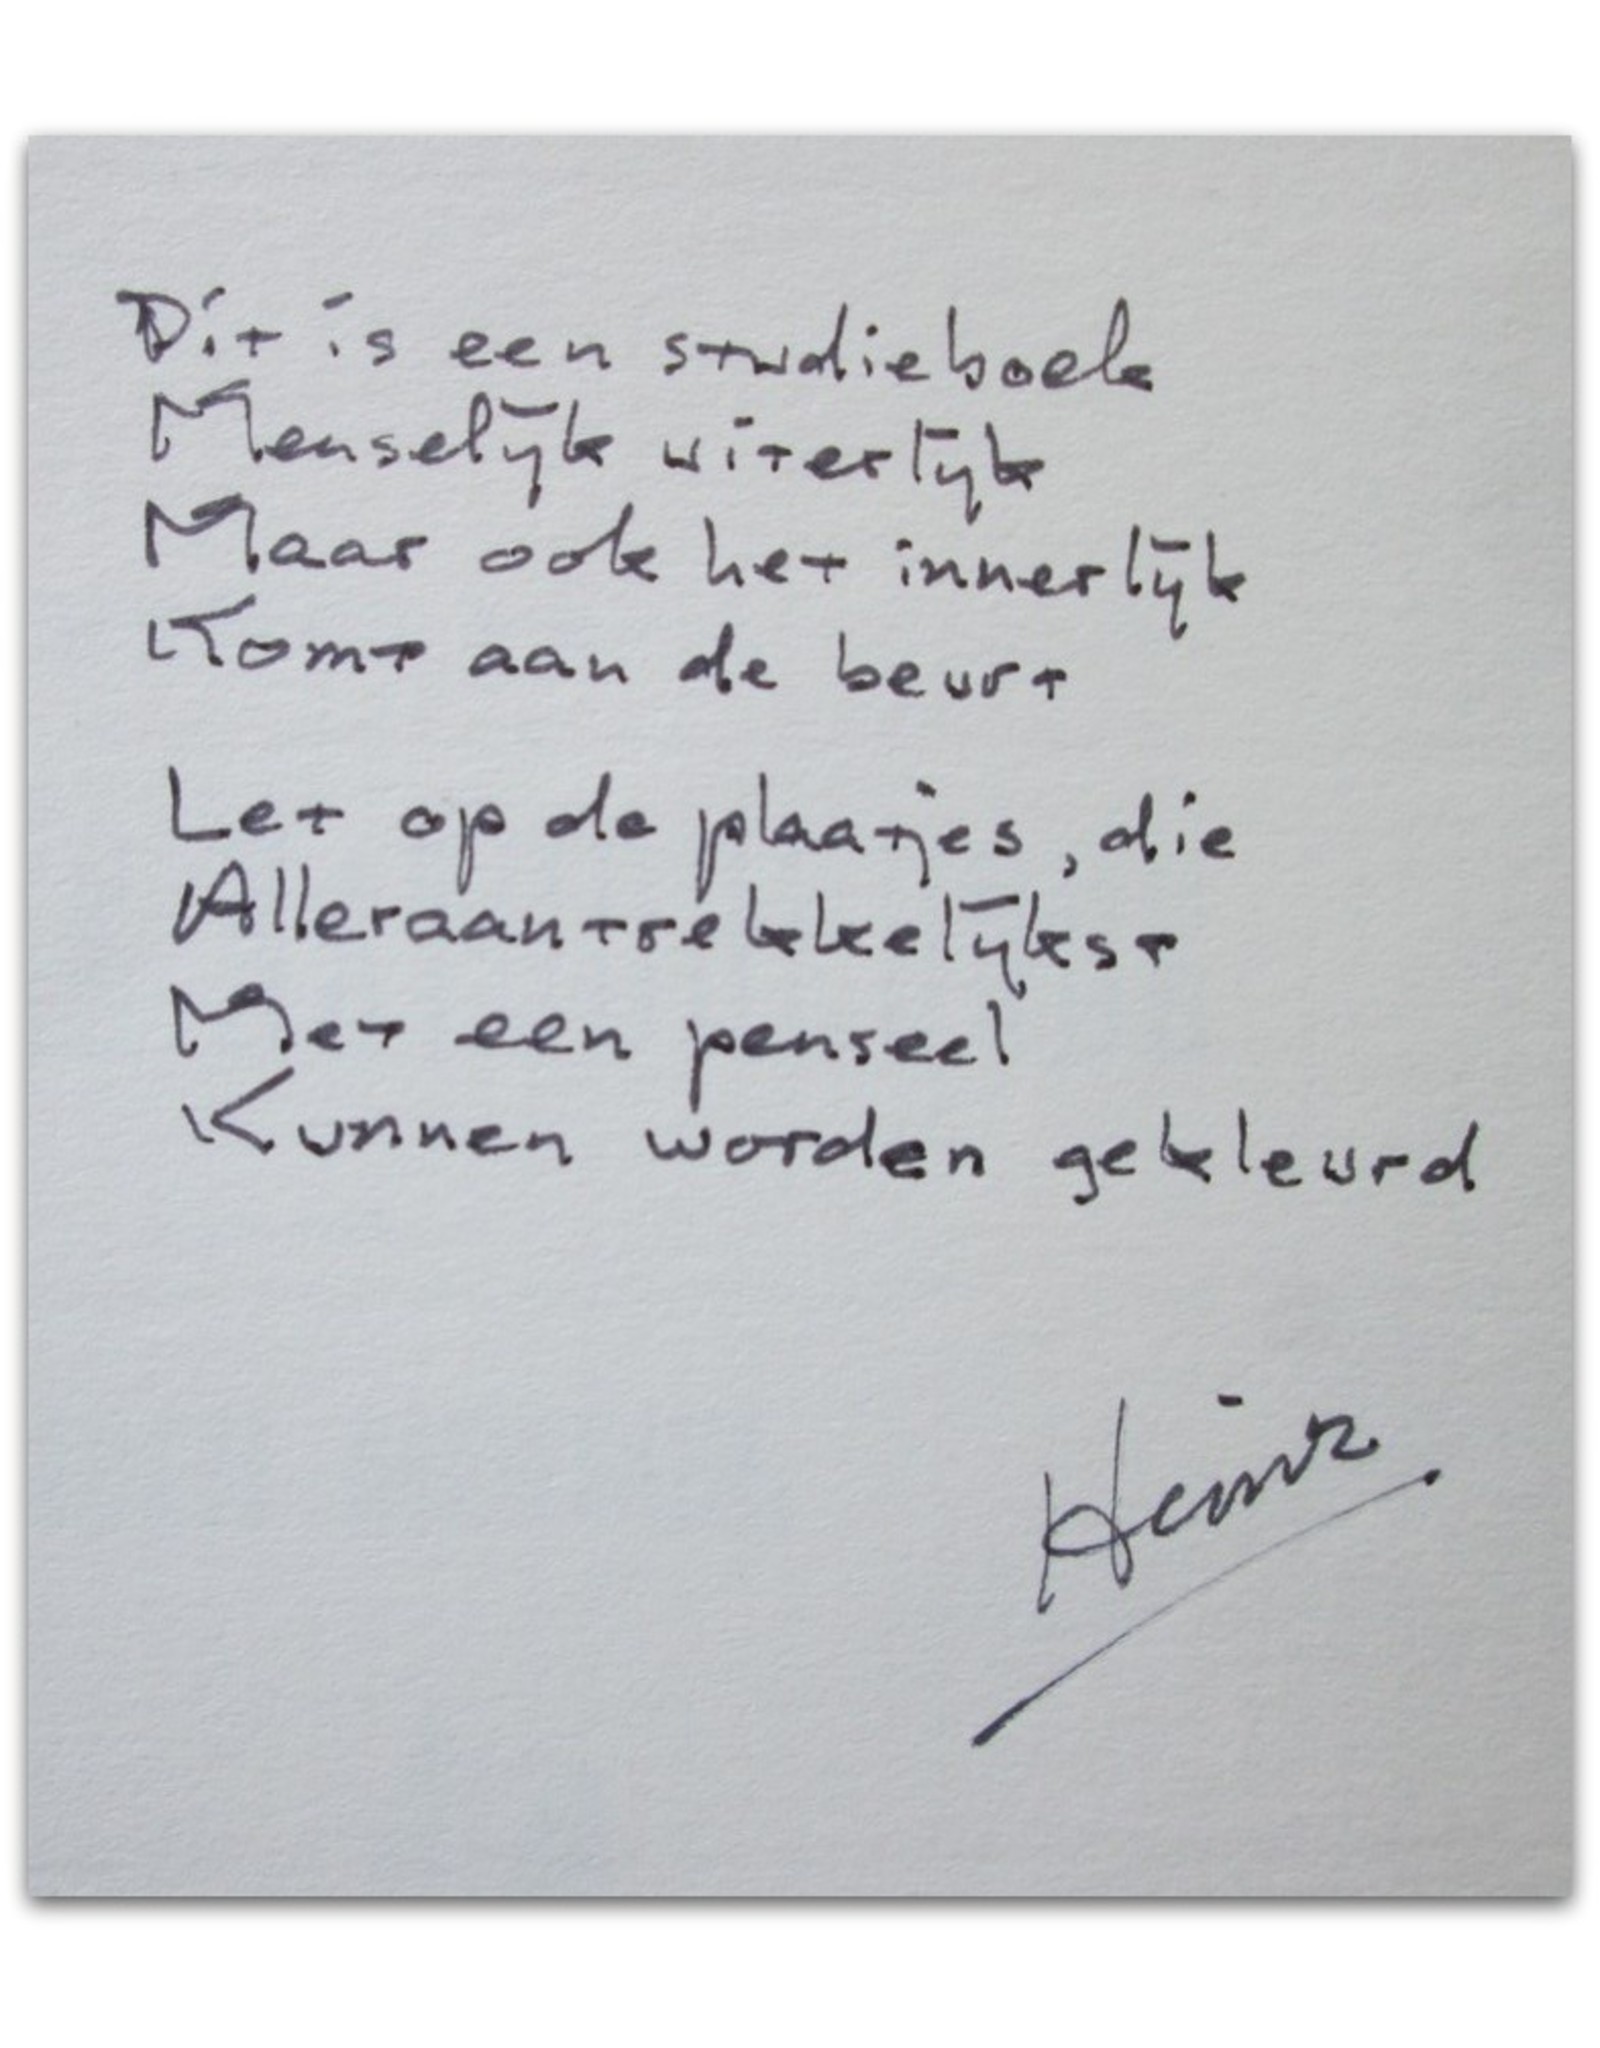 Dit is een studieboek
Menselijk uiterlijk
Maar ook het innerlijk
Komt aan de beurt
Let op de plaatjes, die
Alleraantrekkelijkst
Met een penseel
Kunnen worden gekleurd
Heinz